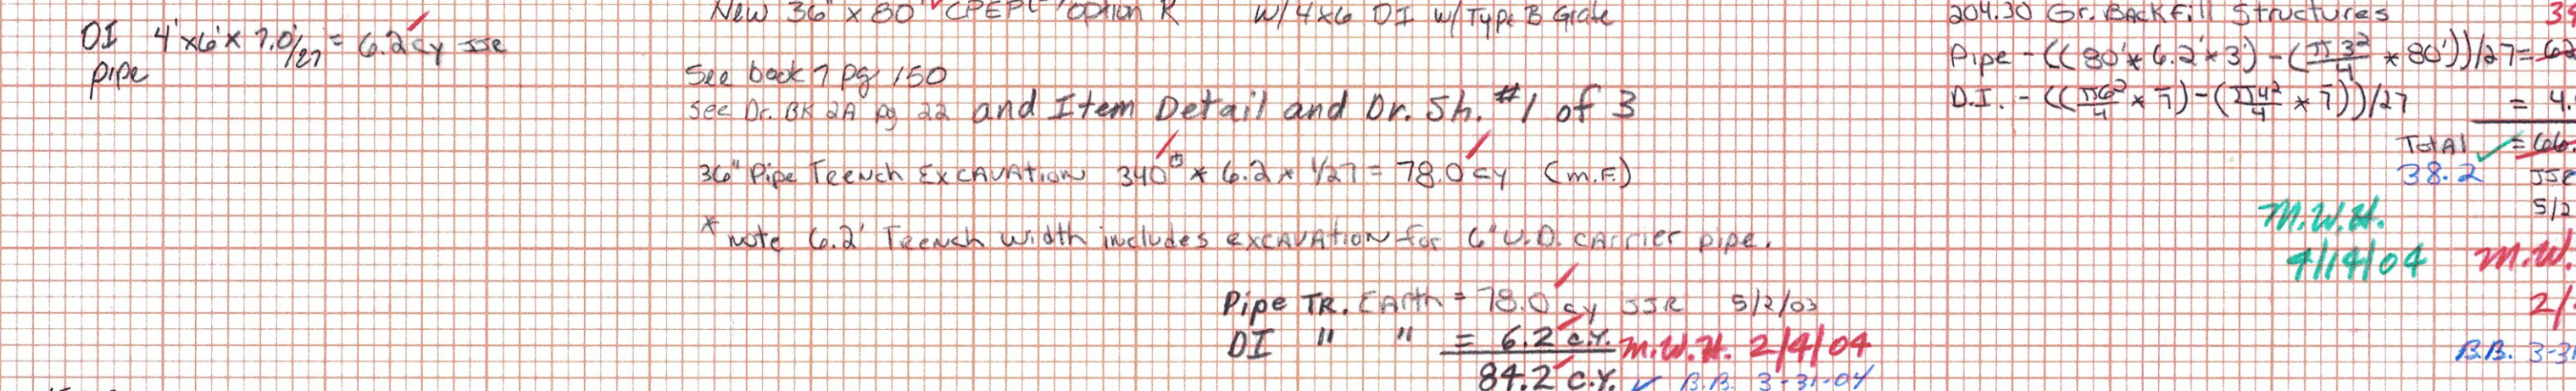 New 36" x 80' CPEPL-Option R W/ 4x6 DI w/ Type B Grate
DI 4'x6'x 7.0/27 = 6.2 cy SSR
pipe
See book 7 pg 150
See Dr. BK 2A pg 22 and Item Detail and Dr. Sh. #1 of 3
36" Pipe Trench Excavation 340 * 6.2 * 1/27 = 78.0 cy (m.F.)
* note 6.2' Trench width includes excavation for 6" U.D. carrier pipe.
Pipe TR. Earth = 78.0 cy SSR 5/2/03
DI " " = 6.2 c.y. M.W.H. 2/4/04
84.2 c.y. ✓ B.B. 3-31-04
204.30 Gr. Backfill Structures
Pipe - ((80'* 6.2'* 3') - (π3²/4 * 80'))/27 = 62
D.I. - ((π6²/4 * 7) - (π4²/4 * 7))/27 = 4.
Total ✓ = 66.
38.2 SSR
M.W.H. 5/2
4/14/04 M.W.
2/
B.B. 3-31